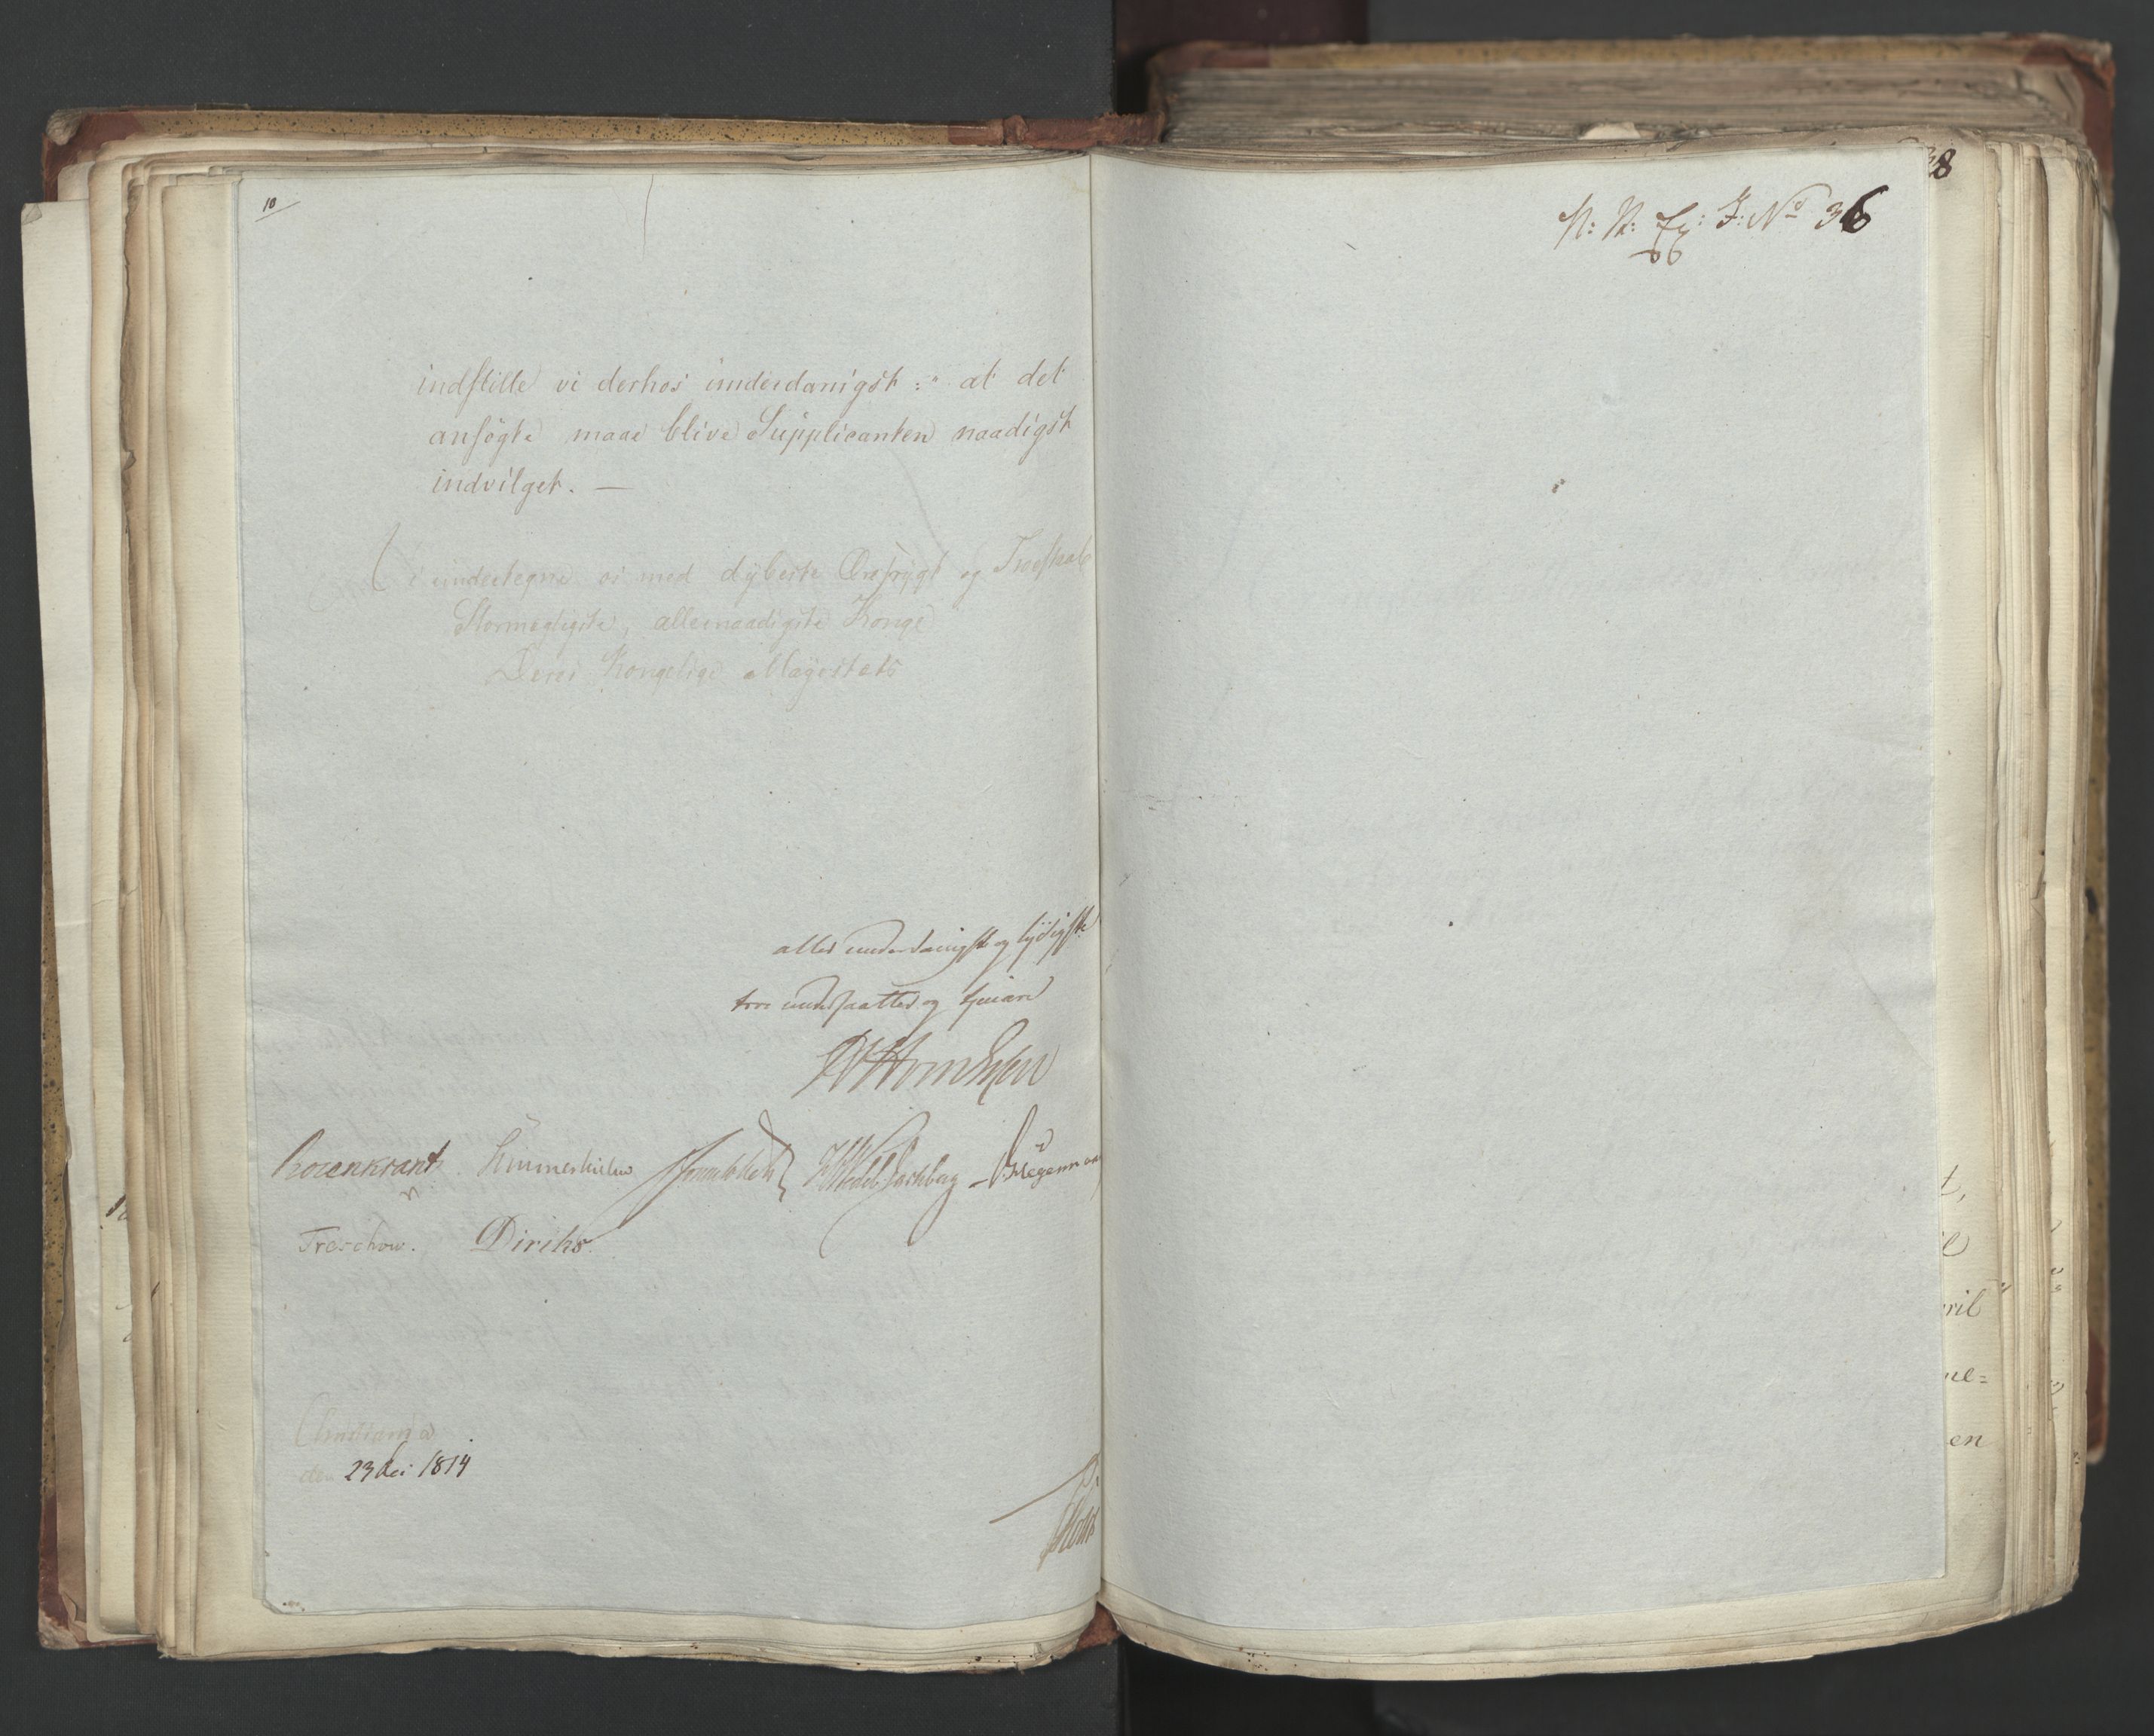 10
indstille vi derhos underdanigst: " at det
ansögte maae blive Supplicanten naadigst
indvilget. —
Vi undertegne os med dybeste Ærefrygt og Troeskab
Stormægtigste, allernaadigste Konge
Deres Kongelige Majestæts
aller underdanigst og lydigste
troe undersaatter og tjenere
Rosenkrantz Hegermann
Treschow. Diriks.
Christiania
den 23 dei 1814
N: R: Ex: J: No 36
38
t,
ril
ne=
en